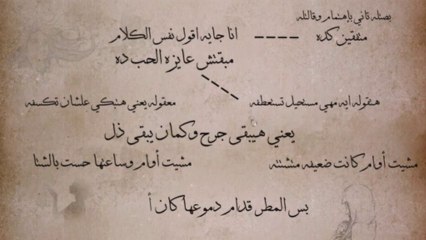 بصتله تاني بإهتمام وقالتله
متفقين كده
انا جايه اقول نفس الكلام
مبقتش عايزه الحب ده
هتقوله ايه مهي مستحيل تستعطفه
معقوله يعني هتبكي علشان تكسفه
يعني هيبقى جرح وكمان يبقى ذل
مشيت أوام كانت ضعيفه متشتته
مشيت أوام وساعتها حست بالشتا
بس المطر قدام دموعها كان أ